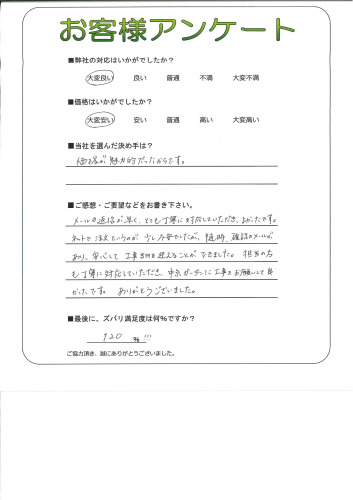 お客様アンケート
■弊社の対応はいかがでしたか?
大変良い 良い 普通 不満 大変不満
■価格はいかがでしたか?
大変安い 安い 普通 高い 大変高い
■当社を選んだ決め手は?
価格が魅力的だったからです。
■ご感想・ご要望などをお書き下さい。
メールの返信が早く、とても丁寧に対応していただき、よかったです。
ネットで注文というのが少し不安でしたが、随時、確認のメールが
あり、安心して工事当日迎えることができました。担当の方
も丁寧に対応していただき、中京ガーデンに工事をお願いして良
かったです。ありがとうございました。
■最後に、ズバリ満足度は何%ですか?
120 % !!!
ご協力頂き、誠にありがとうございました。